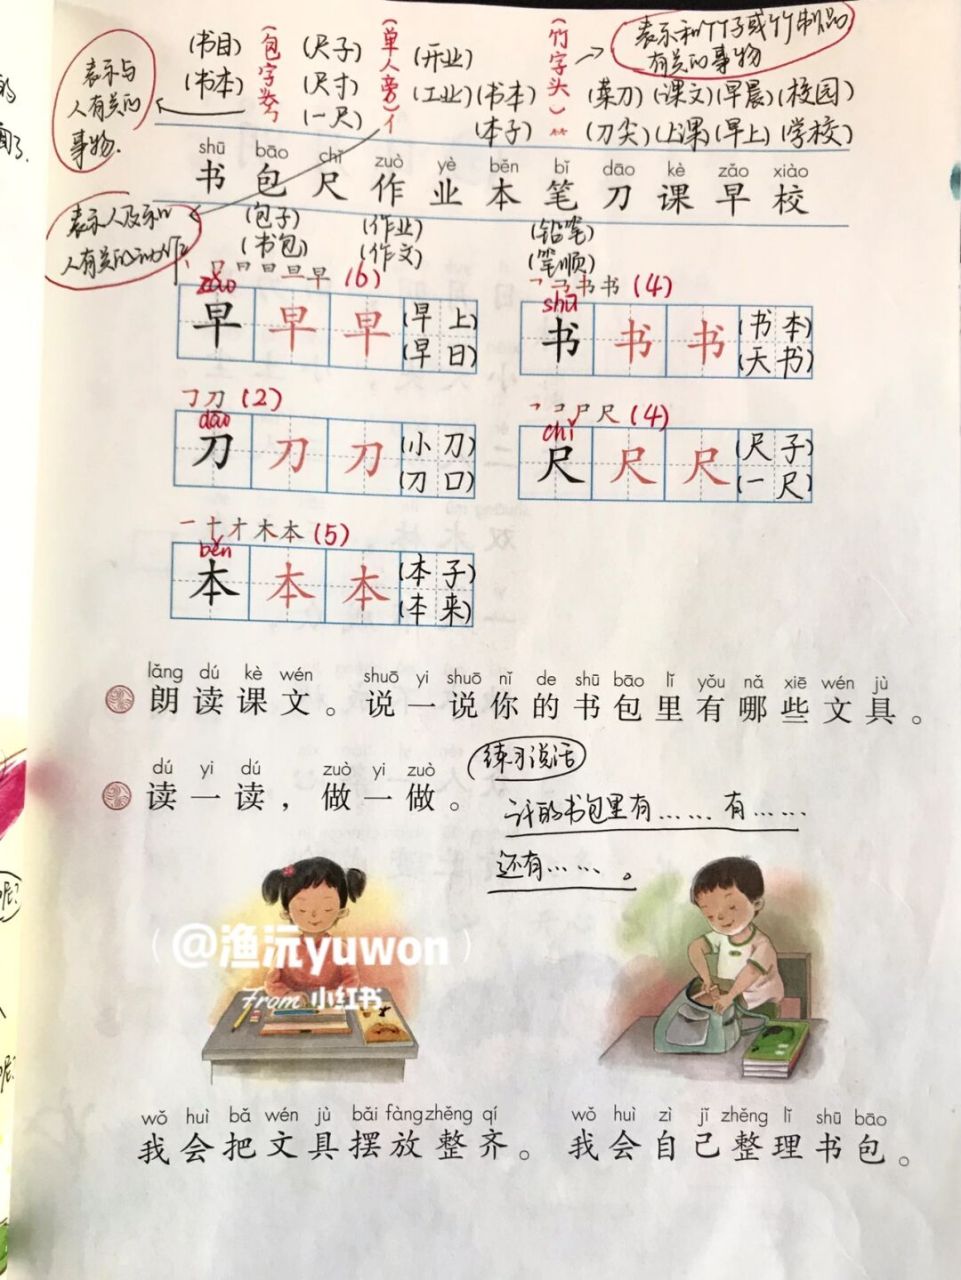 (书目) (尺子) (开业)
(书本) (尺寸) (工业) (书本) (菜刀) (课文) (早晨) (校园)
(一尺) (本子) (刀尖) (上课) (早上) (学校)
包字头 勹
单人旁 亻
(竹字头) ⺮
表示和竹子或竹制品
有关的事物
表示与
人有关的
事物.
shū bāo chǐ zuò yè běn bǐ dāo kè zǎo xiào
书 包 尺 作 业 本 笔 刀 课 早 校
表示人及和
人有关的动作
(包子) (作业) (铅笔)
(书包) (作文) (笔顺)
早 (6)
zǎo
早 早 早 (早上)
(早日)
书 书 (4)
shū
书 书 书 (书本)
(天书)
㇆ 刀 (2)
dāo
刀 刀 刀 (小刀)
(刀口)
尸 尺 (4)
chǐ
尺 尺 尺 (尺子)
(一尺)
一 十 才 木 本 (5)
běn
本 本 本 (本子)
(本来)
lǎng dú kè wén shuō yi shuō nǐ de shū bāo lǐ yǒu nǎ xiē wén jù
朗读课文。说一说你的书包里有哪些文具。
dú yi dú zuò yi zuò
读一读，做一做。
练习说话
我的书包里有…… 有……
还有……。
@渔沅yuwon
From 小红书
wǒ huì bǎ wén jù bǎi fàng zhěng qí
我会把文具摆放整齐。
wǒ huì zì jǐ zhěng lǐ shū bāo
我会自己整理书包。